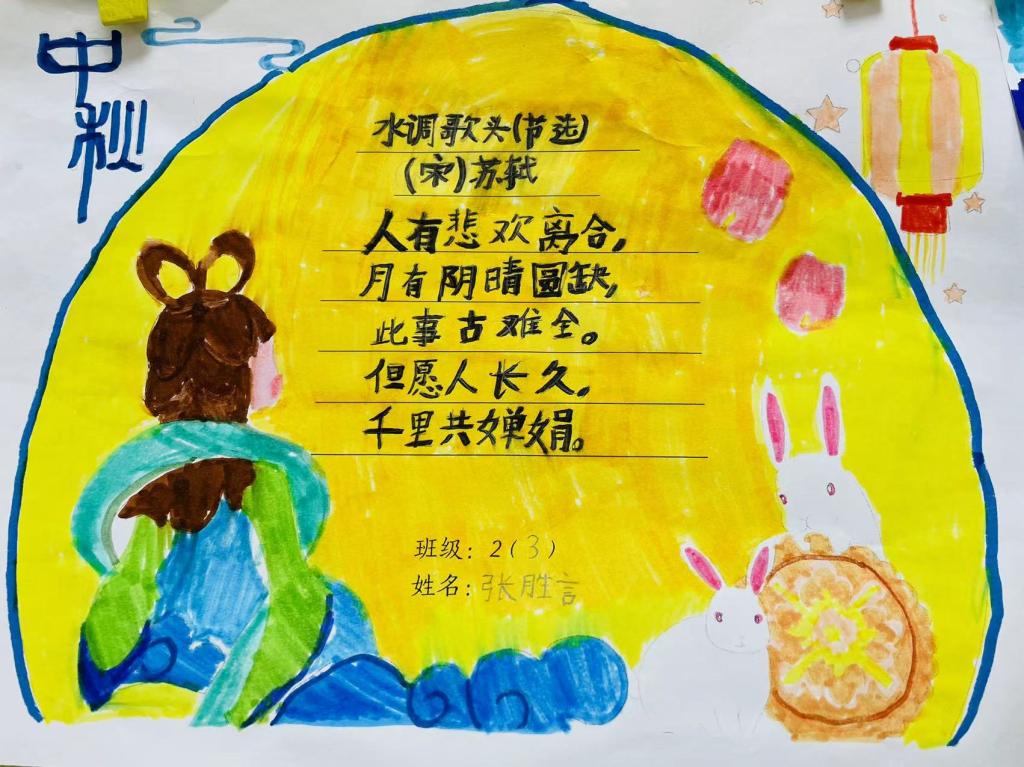 中秋
水调歌头(节选)
(宋)苏轼
人有悲欢离合,
月有阴晴圆缺,
此事古难全。
但愿人长久,
千里共婵娟。
班级：2(3)
姓名：张胜言